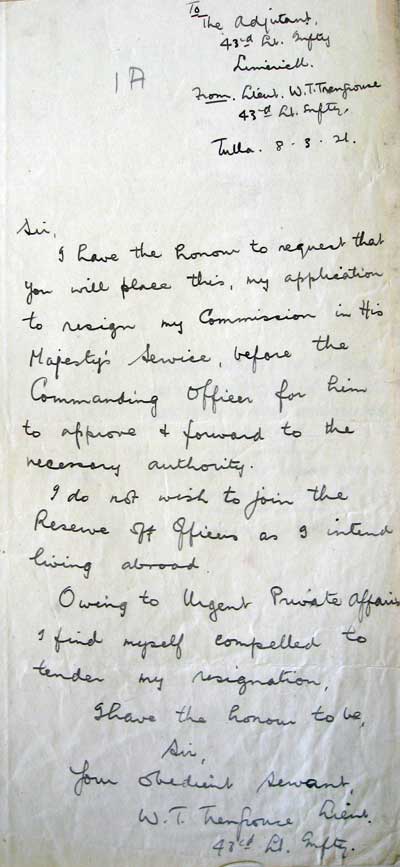 To
The Adjutant,
43rd Lt. Infty
Limerick.
1A
From. Lieut. W.T. Trengrouse
43rd Lt. Infty.
Tulla. 8 . 3 . 21.
Sir,
I have the honour to request that
you will place this, my application
to resign my Commission in His
Majesty's Service, before the
Commanding Officer for him
to approve & forward to the
necessary authority.
I do not wish to join the
Reserve of Officers as I intend
living abroad.
Owing to Urgent Private Affairs
I find myself compelled to
tender my resignation,
I have the honour to be,
Sir,
Your obedient servant,
W.T. Trengrouse Lieut.
43rd Lt. Infty.